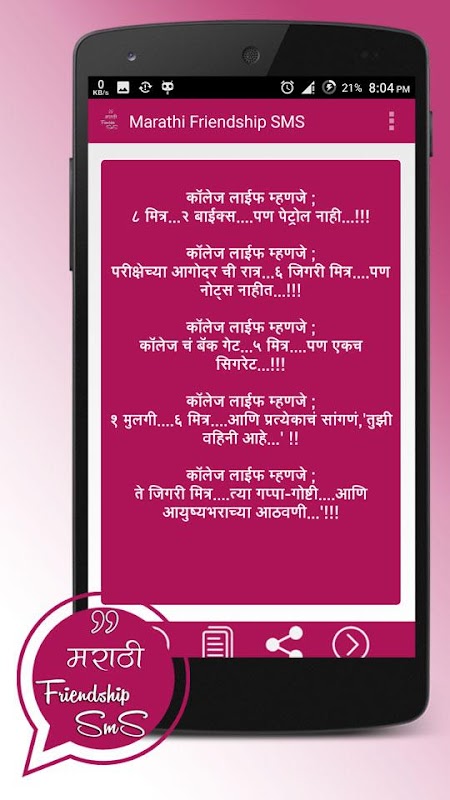 0
KB/s
21% 8:04 PM
मराठी
Friendship
SMS
Marathi Friendship SMS
कॉलेज लाईफ म्हणजे ;
८ मित्र...२ बाईक्स....पण पेट्रोल नाही...!!!
कॉलेज लाईफ म्हणजे ;
परीक्षेच्या आगोदर ची रात्र...६ जिगरी मित्र....पण
नोट्स नाहीत...!!!
कॉलेज लाईफ म्हणजे ;
कॉलेज चं बॅक गेट...५ मित्र....पण एकच
सिगरेट...!!!
कॉलेज लाईफ म्हणजे ;
१ मुलगी....६ मित्र....आणि प्रत्येकाचं सांगणं,'तुझी
वहिनी आहे...' !!
कॉलेज लाईफ म्हणजे ;
ते जिगरी मित्र....त्या गप्पा-गोष्टी....आणि
आयुष्यभराच्या आठवणी...'!!!
मराठी
Friendship
SmS